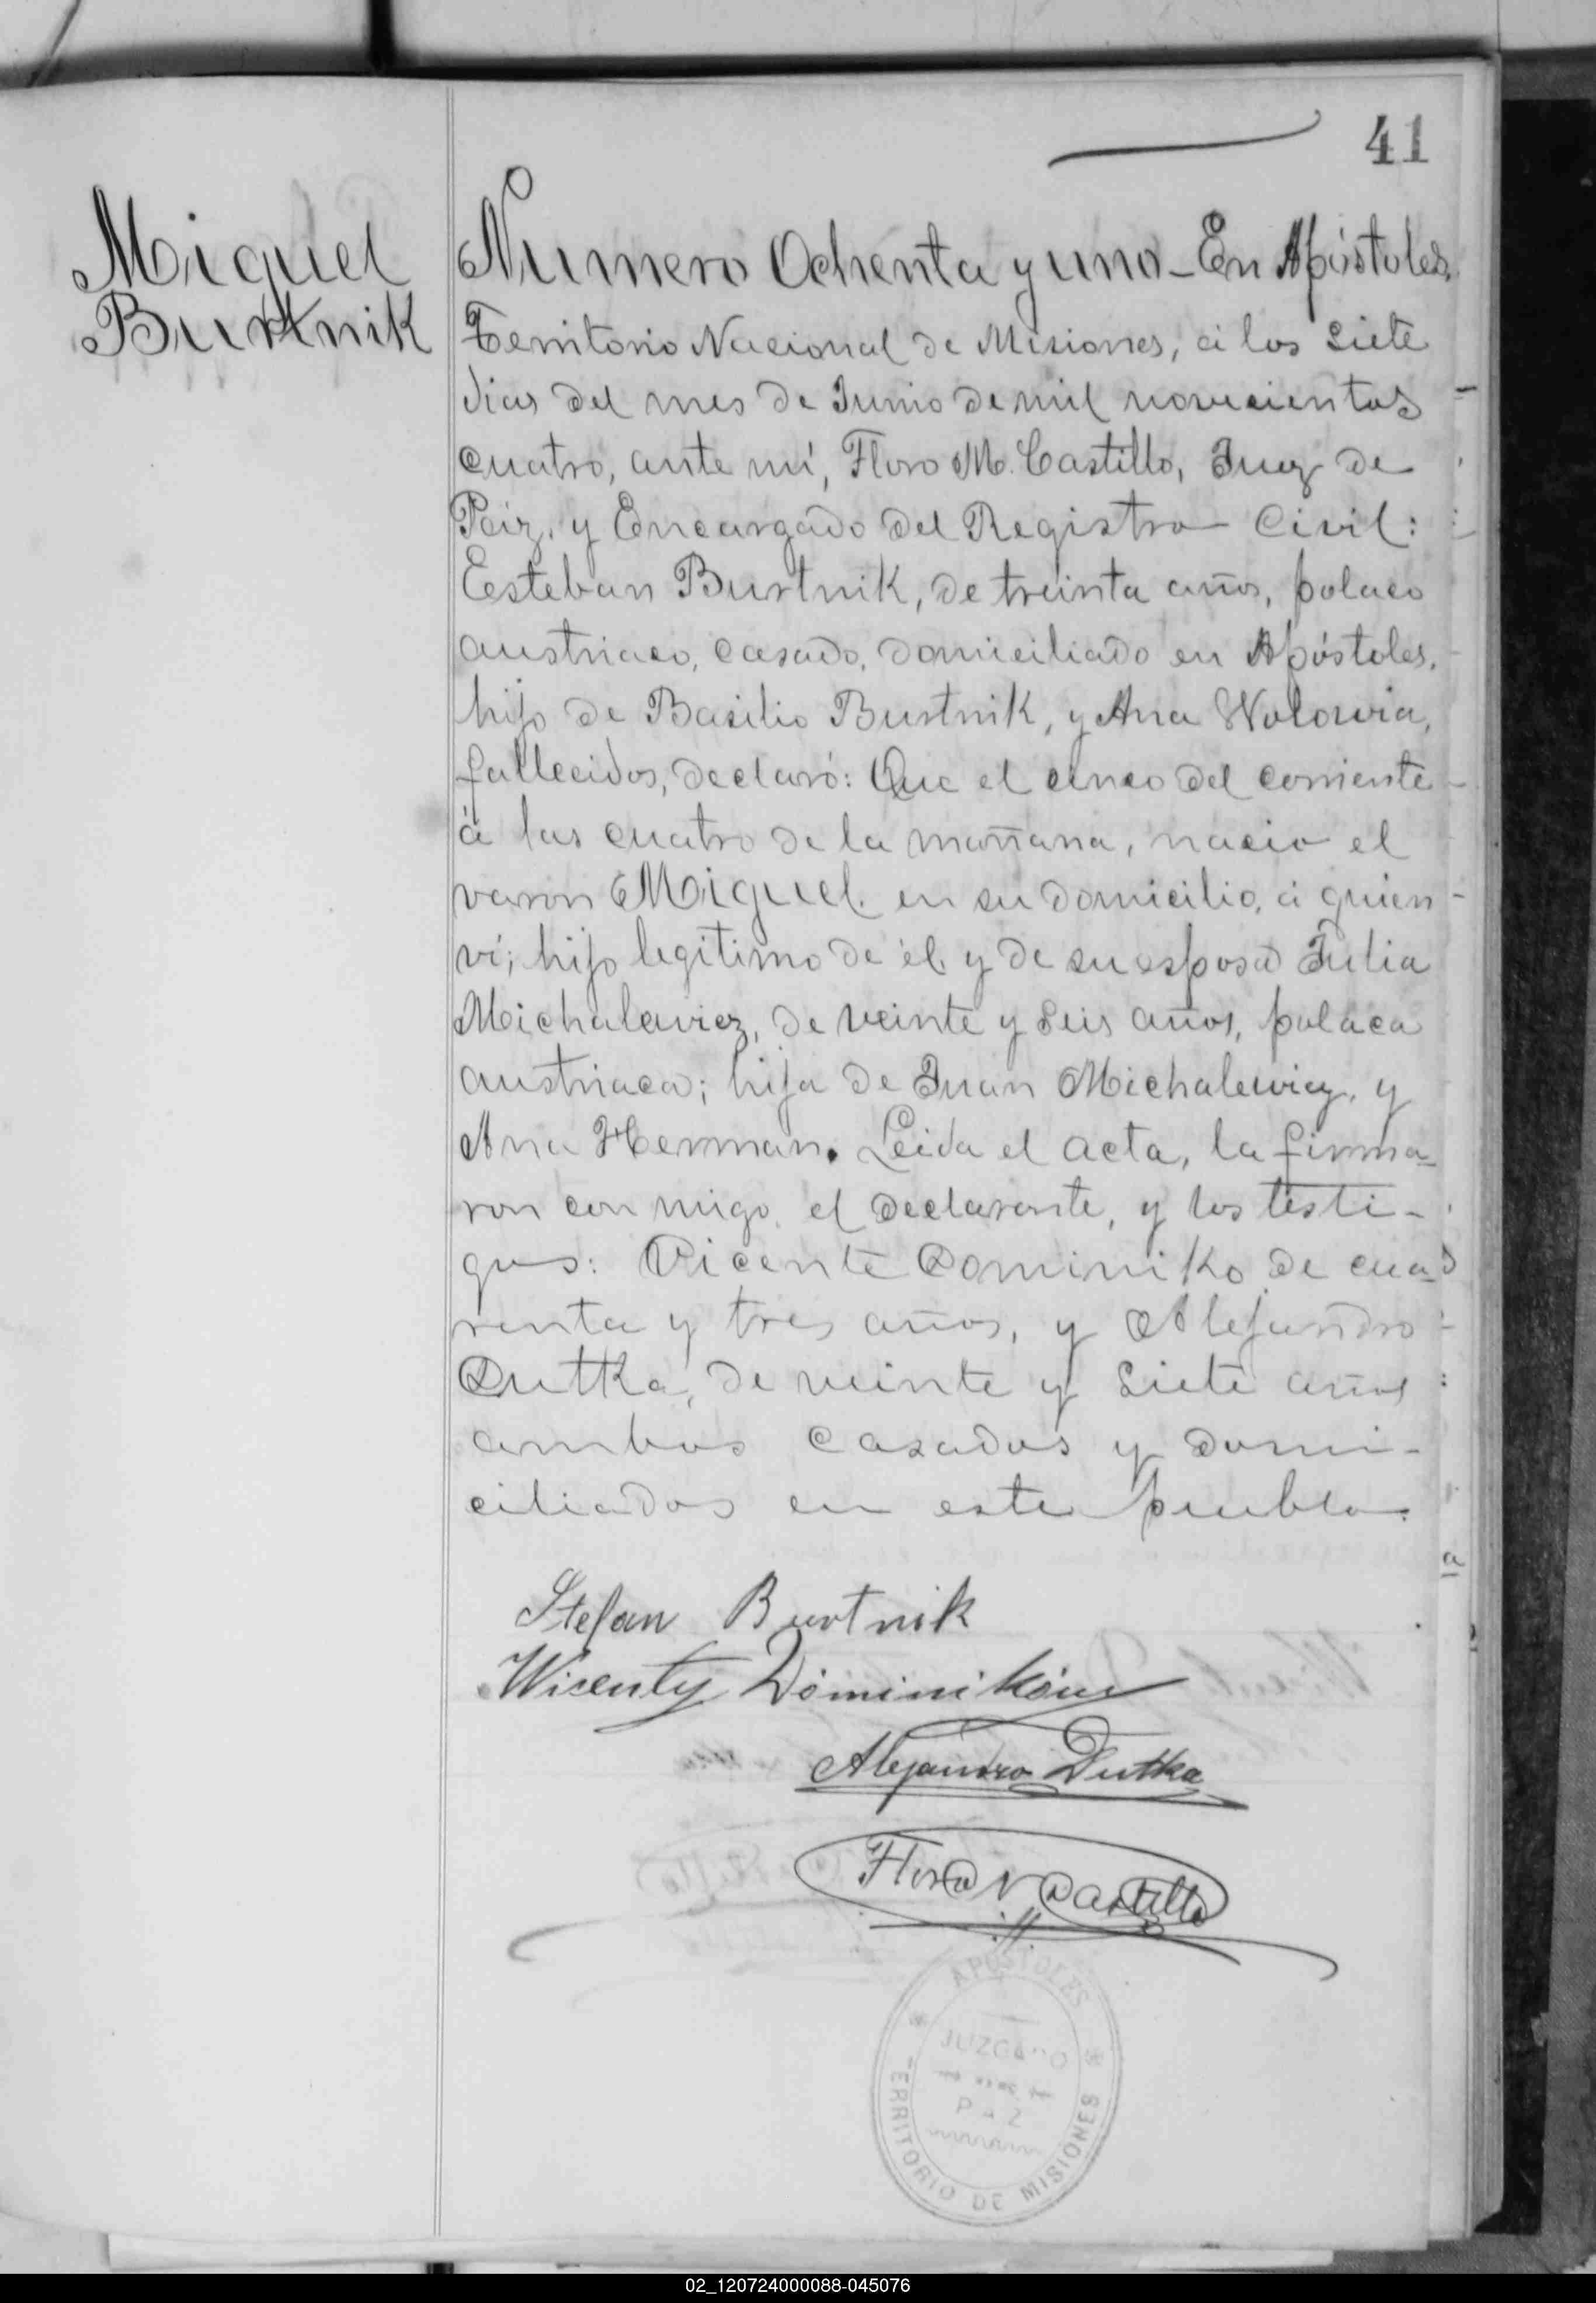 41
Miguel
Burtnik
Numero Ochenta y uno - En Apóstoles,
Territorio Nacional de Misiones, á los siete
dias del mes de Junio de mil novecientos
cuatro, ante mí, Floro M. Castillo, Juez de
Paz, y Encargado del Registro Civil:
Esteban Burtnik, de treinta años, polaco
austriaco, casado, domiciliado en Apóstoles,
hijo de Basilio Burtnik, y Ana Wolowia,
fallecidos, declaró: Que el cinco del corriente
á las cuatro de la mañana, nacio el
varon Miguel en su domicilio, á quien
ví; hijo legitimo de él y de su esposa Julia
Michalewicz, de veinte y seis años, polaca
austriaca; hija de Juan Michalewicz, y
Ana Herman. Leida el acta, la firma-
ron con migo, el declarante, y los testi-
gos: Vicente Dominiko, de cua-
renta y tres años, y Alejandro
Dutka, de veinte y siete años
ambos casados y domi-
ciliados en este pueblo.
Stefan Burtnik
Wicenty
Alejandro Dutka
Floro Castillo
APOSTOLES
JUZGADO
PAZ
TERRITORIO DE MISIONES
02_120724000088-045076